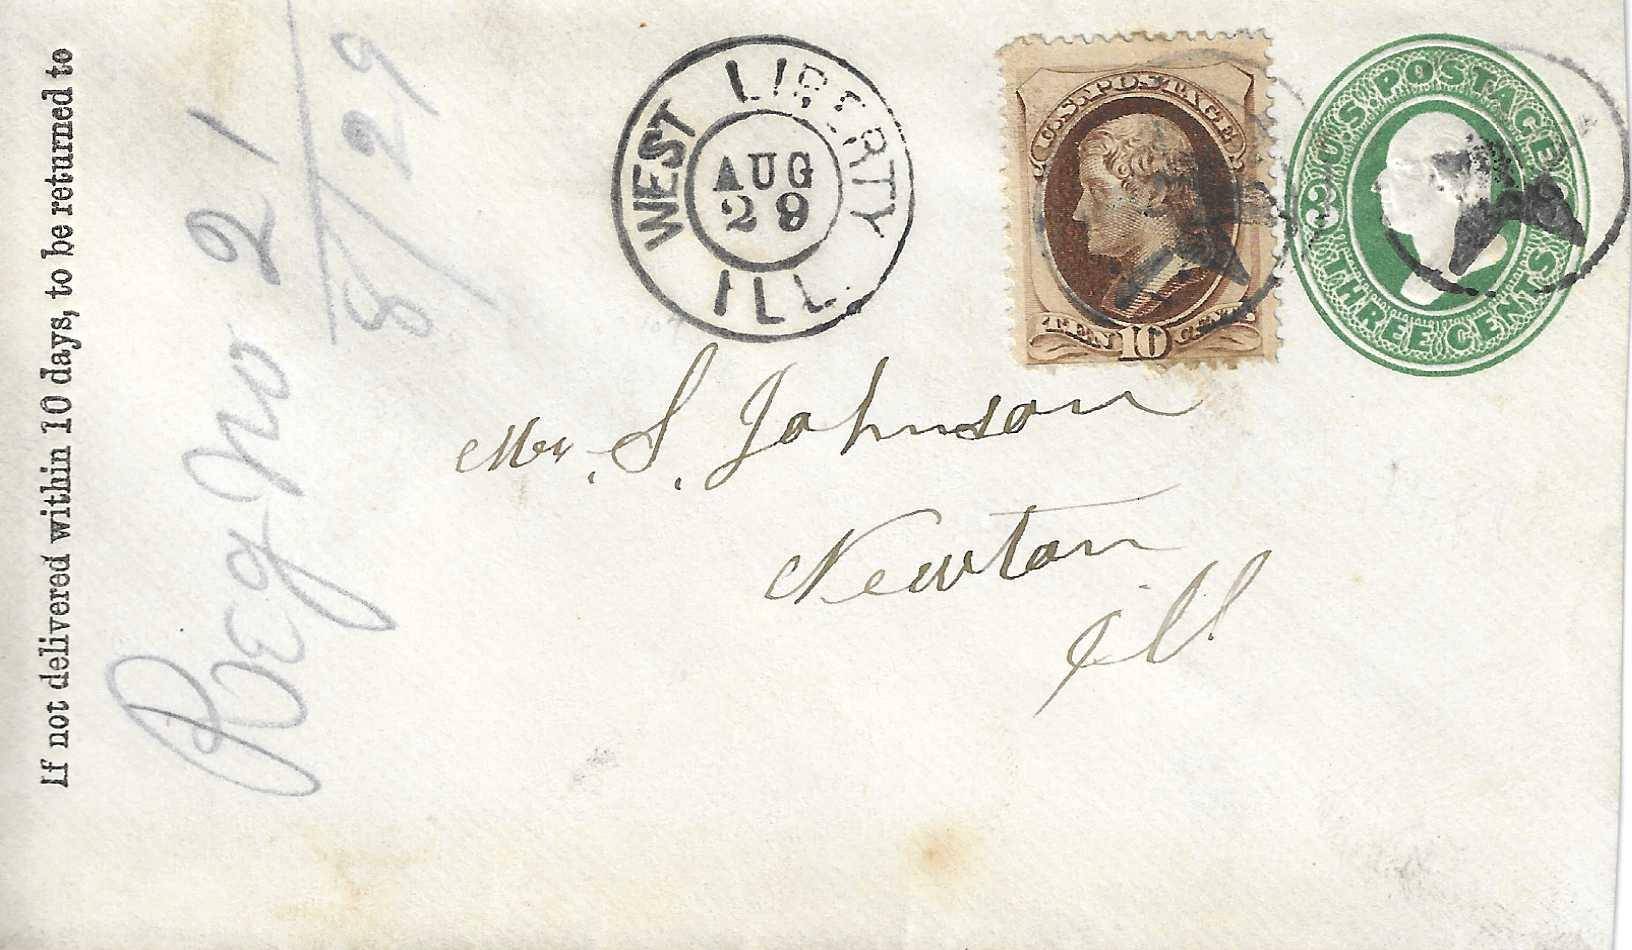 If not delivered within 10 days, to be returned to
Reg No 21
8/29
WEST LIBERTY
AUG
29
ILL.
U.S. POSTAGE
TEN 10 CENTS
U.S. POSTAGE
3 THREE CENTS
Mr. S. Johnson
Newton
Ill